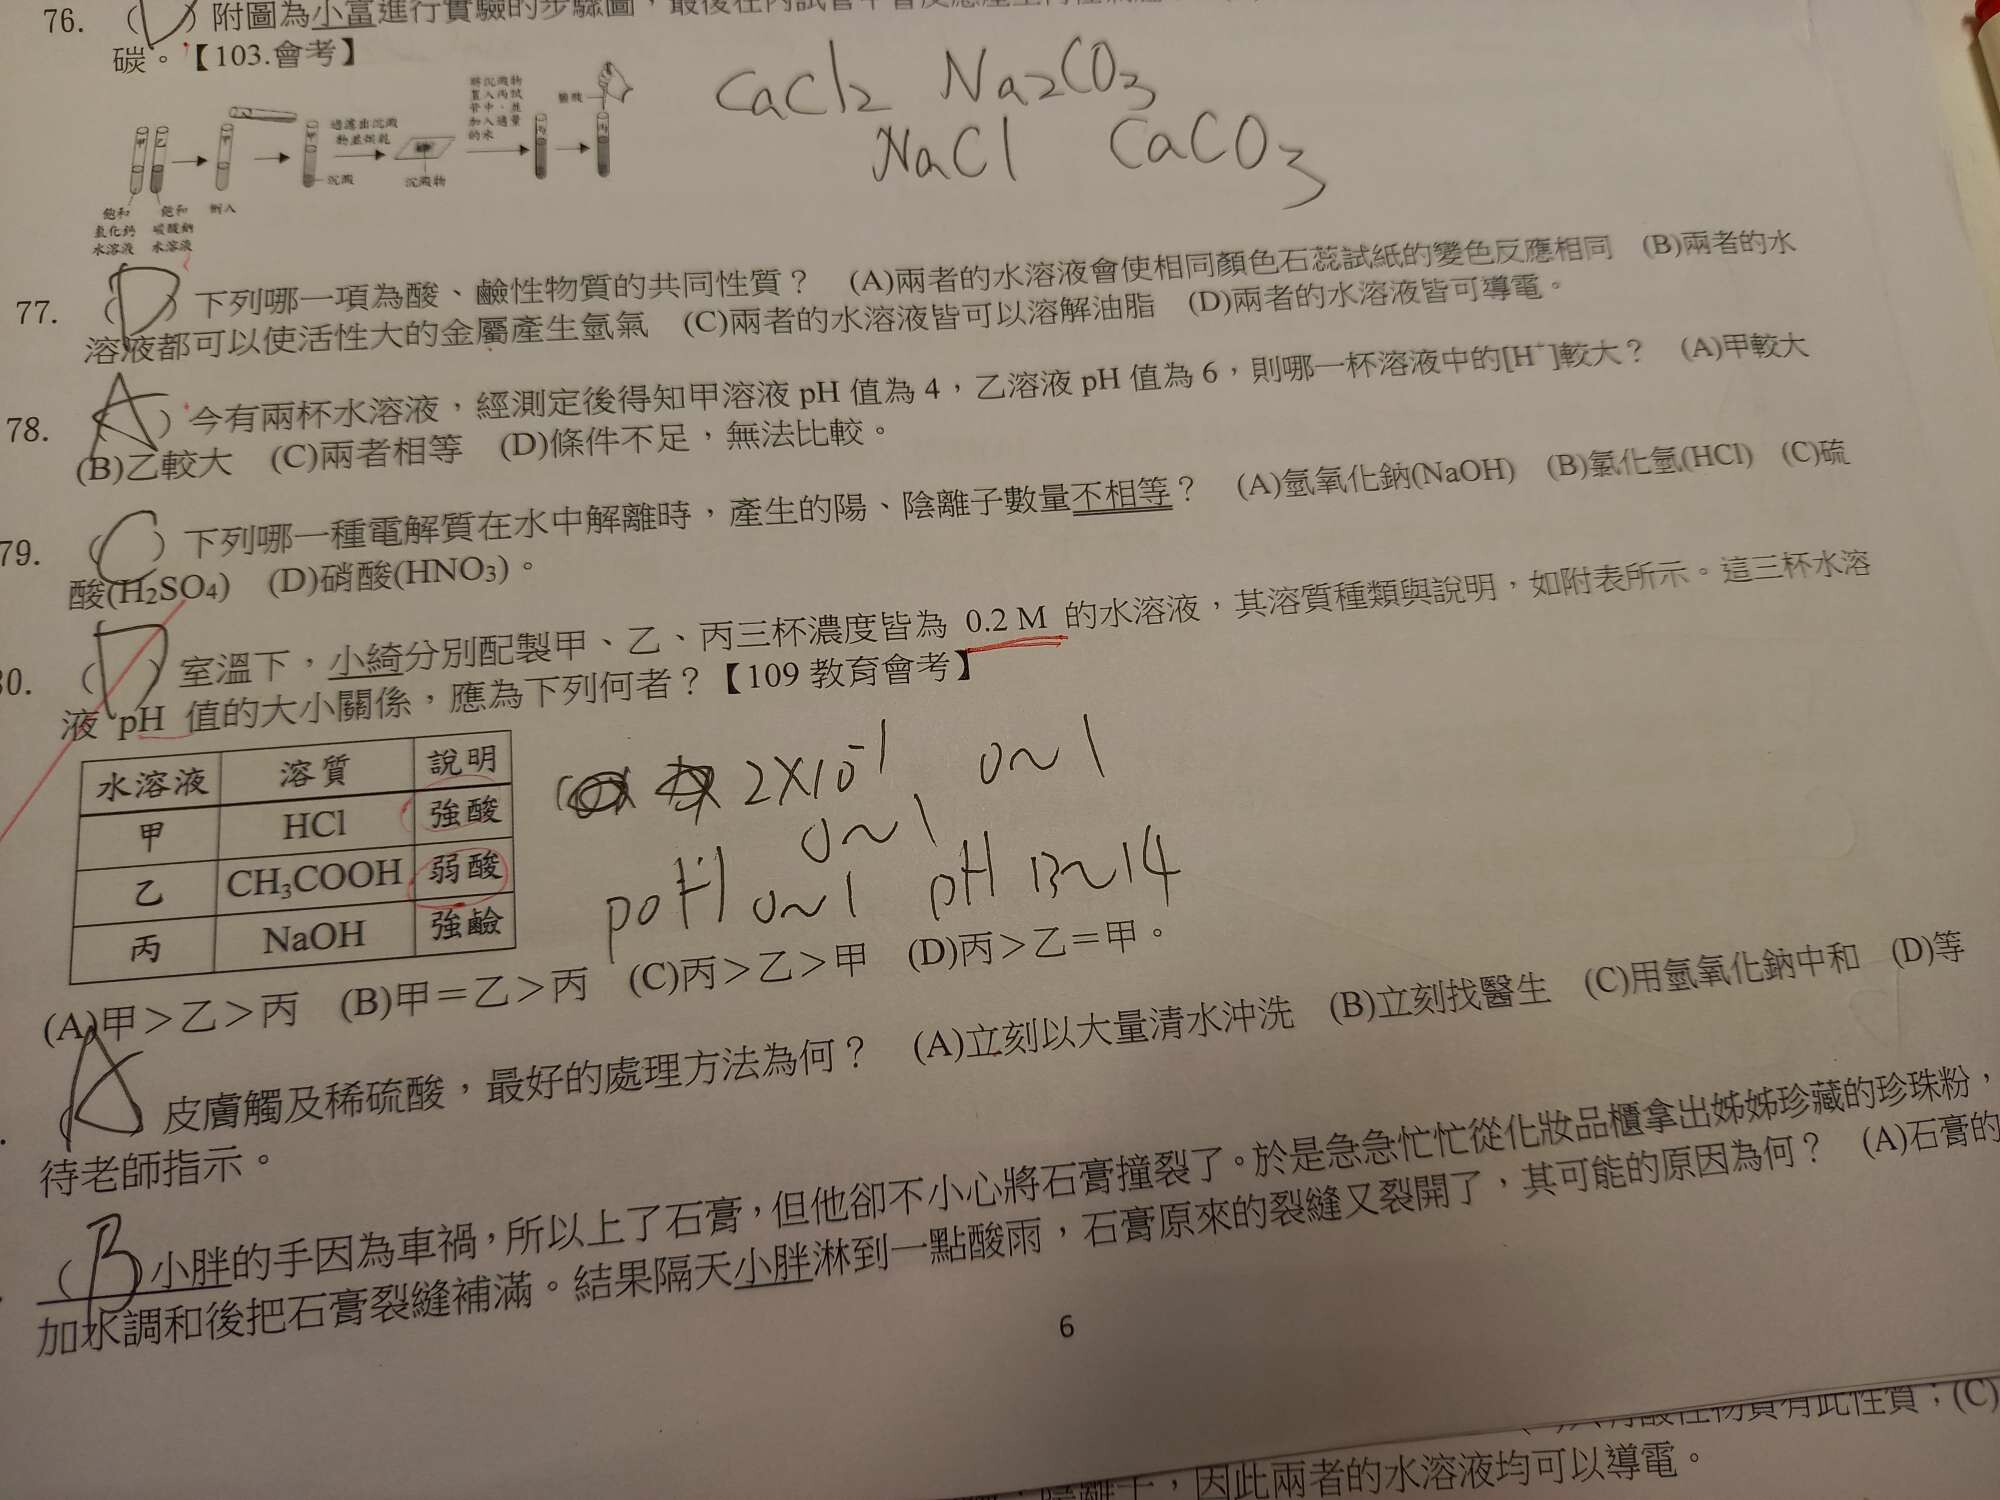 76. (D) 附圖為小富進行實驗的步驟圖，最後在丙試管中會反應產生
碳。【103.會考】
CaCl2 Na2CO3
NaCl CaCO3
將沉澱物
置入丙試
管中，並
加入適量
的水
過濾出沉澱
物並烘乾
甲 乙 甲 甲 丙 丙
沉澱 沉澱物
飽和 飽和 倒入
氯化鈣 碳酸鈉
水溶液 水溶液
77. (D) 下列哪一項為酸、鹼性物質的共同性質？ (A)兩者的水溶液會使相同顏色石蕊試紙的變色反應相同 (B)兩者的水
溶液都可以使活性大的金屬產生氫氣 (C)兩者的水溶液皆可以溶解油脂 (D)兩者的水溶液皆可導電。
78. (A) 今有兩杯水溶液，經測定後得知甲溶液 pH 值為 4，乙溶液 pH 值為 6，則哪一杯溶液中的[H⁺]較大？ (A)甲較大
(B)乙較大 (C)兩者相等 (D)條件不足，無法比較。
79. (C) 下列哪一種電解質在水中解離時，產生的陽、陰離子數量不相等？ (A)氫氧化鈉(NaOH) (B)氯化氫(HCl) (C)硫
酸(H₂SO₄) (D)硝酸(HNO₃)。
80. (D) 室溫下，小綺分別配製甲、乙、丙三杯濃度皆為 0.2 M 的水溶液，其溶質種類與說明，如附表所示。這三杯水溶
液 pH 值的大小關係，應為下列何者？【109 教育會考】
水溶液 溶質 說明
甲 HCl 強酸
乙 CH₃COOH 弱酸
丙 NaOH 強鹼
2X10⁻¹ 0~1
0~1
poH 0~1 pH 13~14
(A)甲＞乙＞丙 (B)甲＝乙＞丙 (C)丙＞乙＞甲 (D)丙＞乙＝甲。
(A) 皮膚觸及稀硫酸，最好的處理方法為何？ (A)立刻以大量清水沖洗 (B)立刻找醫生 (C)用氫氧化鈉中和 (D)等
待老師指示。
(B) 小胖的手因為車禍，所以上了石膏，但他卻不小心將石膏撞裂了。於是急急忙忙從化妝品櫃拿出姊姊珍藏的珍珠粉，
加水調和後把石膏裂縫補滿。結果隔天小胖淋到一點酸雨，石膏原來的裂縫又裂開了，其可能的原因為何？ (A)石膏的
6
性物質有此性質；(C)
，因此兩者的水溶液均可以導電。